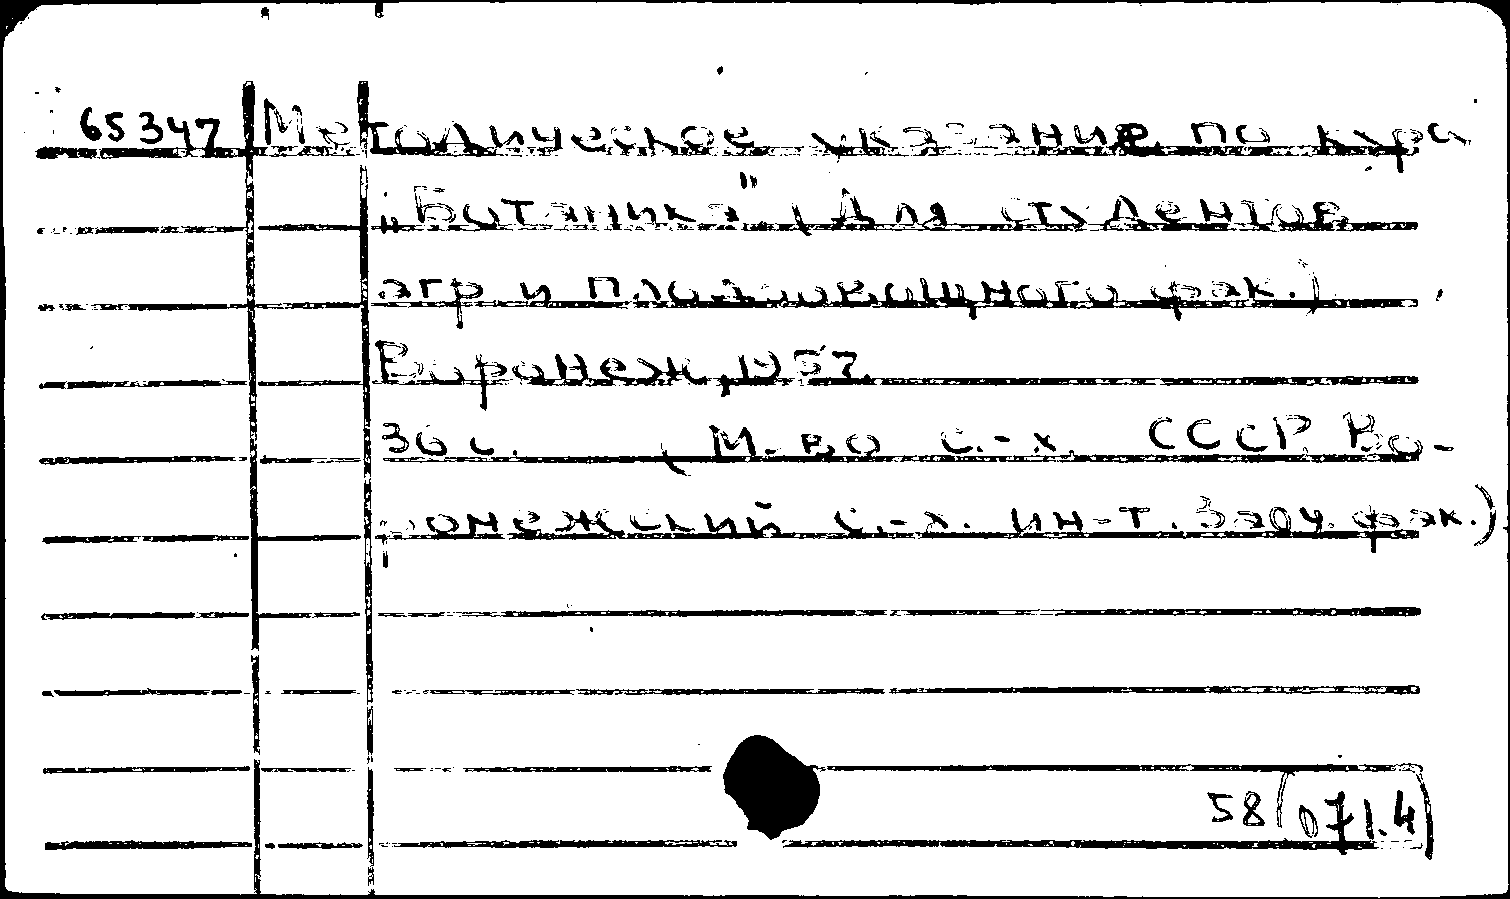 65347 Методическое указание по курсу
„Ботаника" (Для студентов
агр и плодоовощного фак.)
Воронеж, 1957.
36 с. (М-во с.-х. СССР. Во-
ронежский с.-х. ин-т. Заоч. фак.)
58(071.4)